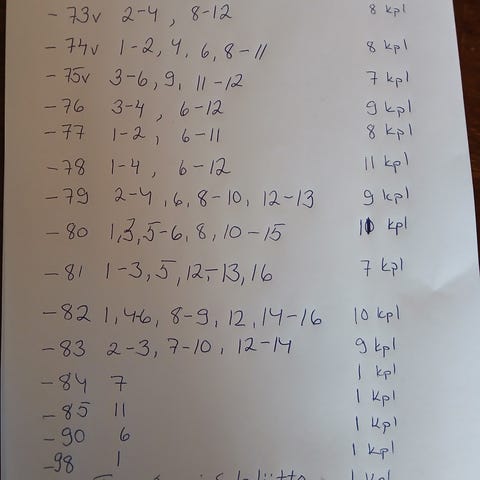 -73v 2-4, 8-12 8 kpl
-74v 1-2, 4, 6, 8-11 8 kpl
-75v 3-6, 9, 11-12 7 kpl
-76 3-4, 6-12 9 kpl
-77 1-2, 6-11 8 kpl
-78 1-4, 6-12 11 kpl
-79 2-4, 6, 8-10, 12-13 9 kpl
-80 1,3,5-6, 8, 10-15 10 kpl
-81 1-3, 5, 12-13, 16 7 kpl
-82 1, 4-6, 8-9, 12, 14-16 10 kpl
-83 2-3, 7-10, 12-14 9 kpl
-84 7 1 kpl
-85 11 1 kpl
-90 6 1 kpl
-98 1 1 kpl
1 kpl